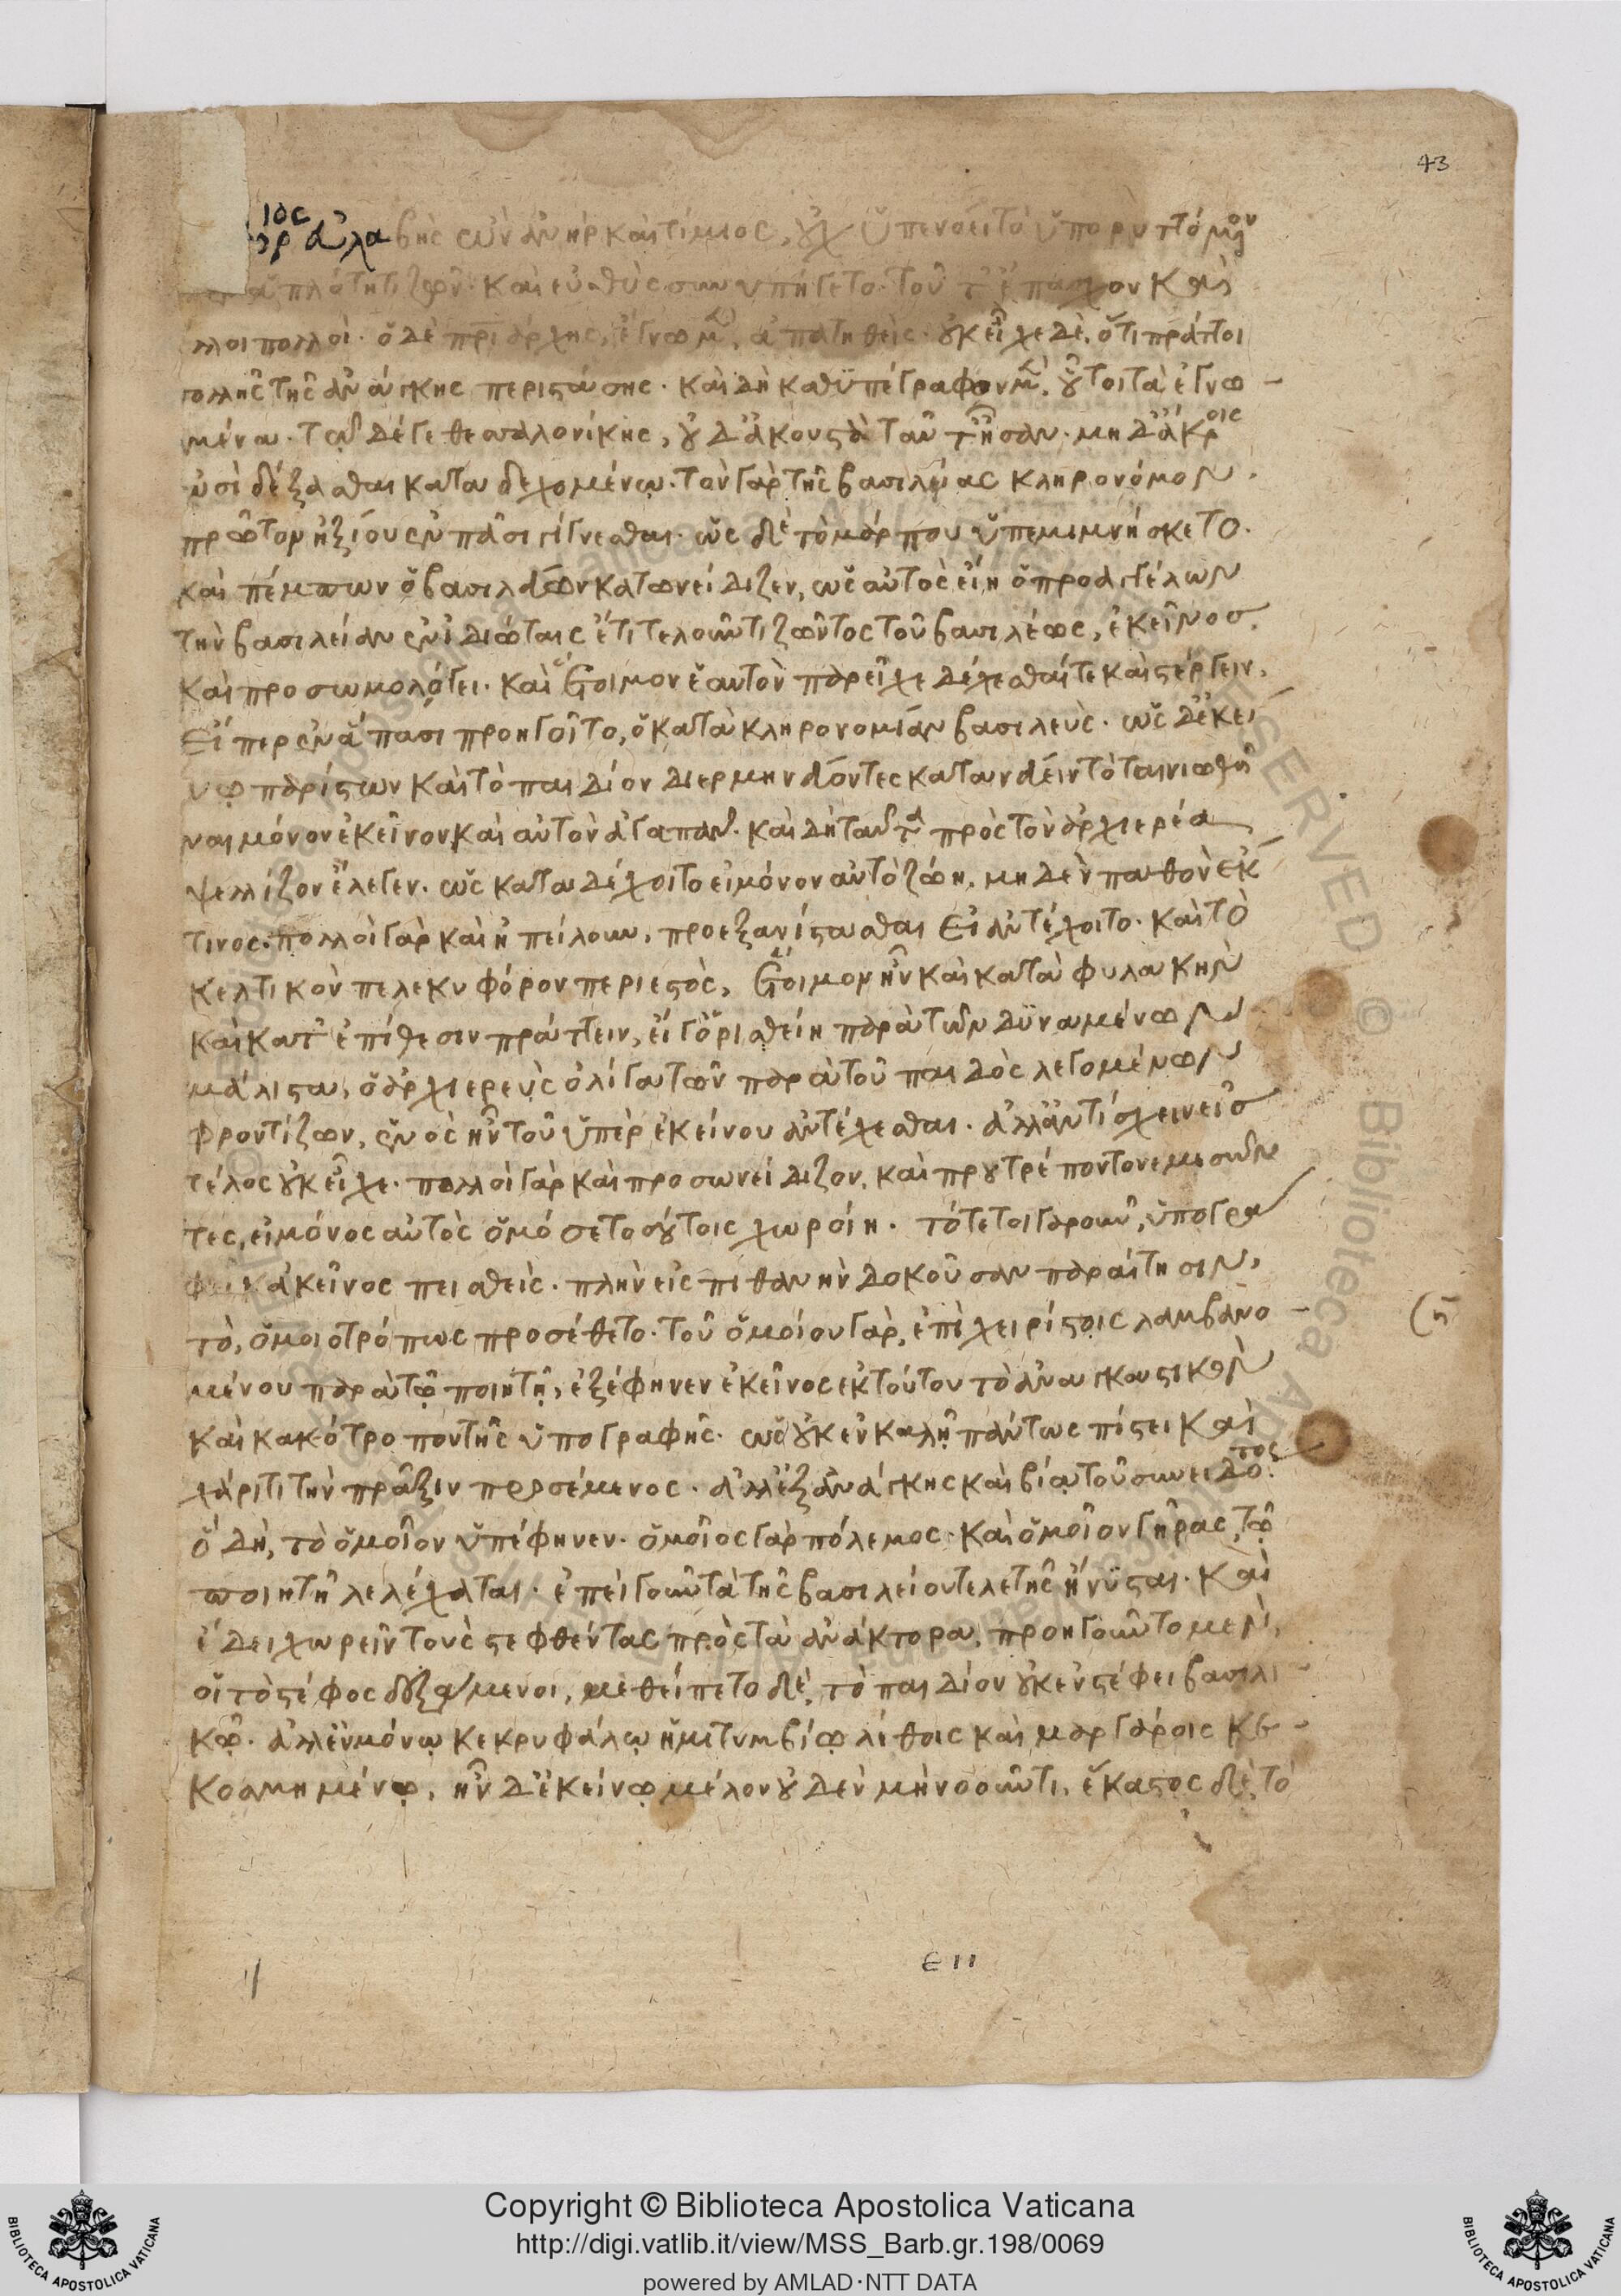 43
εὐλαβὴς ὢν ἀνὴρ καὶ τίμιος, οὐχ ὑπενόει τὸ ὑπορυττόμενον
ἁπλότητι ζῶν· καὶ εὐθὺς συνυπήγετο· τοῦτ' ἔπασχον καὶ
πολλοί· ὁ δὲ πριάρχης, ἔγνω μὲν ἀπατηθείς· οὐκ εἶχε δὲ ὅτι πράττοι
τῆς ἀνάγκης περιστάσης· καὶ δὴ καθυπέγραφον μὲν οὗτοι τὰ ἐγνω-
μένα· τῶ δέ γε θεσσαλονίκης, οὐδ' ἀκουστὰ ταῦτ' ἦσαν· μηδ' ἄκροις
ὠσὶ δέξασθαι καταδεχομένω· τὸν γὰρ τῆς βασιλείας κληρονόμον
πρῶτον ἠξίου ἐν πᾶσι γίγνεσθαι· ὡς δὲ τὸ μάρπου ὑπεμιμνήσκετο·
καὶ πέμπων ὁ βασιλεύων κατωνείδιζεν, ὡς αὐτὸς εἴη ὁ προαγγέλων
τὴν βασιλείαν ἐν ἰδιώταις ἔτι τελοῦντι ζῶντος τοῦ βασιλέως, ἐκεῖνος
καὶ προσωμολόγει· καὶ ἕτοιμον ἑαυτὸν παρεῖχε δέχεσθαί τε καὶ στέργειν,
εἴπερ ἐν ἅπασι προηγοῖτο, ὁ κατὰ κληρονομίαν βασιλεύς· ὡς δ' ἐκεί-
νω παρίστων καὶ τὸ παιδίον διερμηνεύοντες κατανεύειν τὸ ταινιωθῆ
ναι μόνον ἐκεῖνον καὶ αὐτὸν ἀγαπᾶν· καὶ δὴ ταῦτα πρὸς τὸν ἀρχιερέα
ψελλίζον ἔλεγεν· ὡς καταδέχοιτο εἰ μόνον αὐτὸ ζώη, μηδὲν παθὸν ἔκ
τινος· πολλοὶ γὰρ καὶ ἠπείλουν, προεξανίστασθαι εἰ ἀντέχοιτο· καὶ τὸ
κελτικὸν πελεκυφόρον περιεστὸς, ἕτοιμον ἦν καὶ κατὰ φυλακὴν
καὶ κατ' ἐπίθεσιν πράττειν, εἴ γ' ὁρισθείη παρὰ τῶν δυναμένων
μάλιστα, ὁ ἀρχιερεὺς ὀλίγα τῶν παρὰ τοῦ παιδὸς λεγομένων
φροντίζων, ἑνὸς ἦν τοῦ ὑπὲρ ἐκείνου ἀντέχεσθαι· ἀλλ' ἀντίσχειν εἰς
τέλος οὐκ εἶχε· πολλοὶ γὰρ καὶ προσωνείδιζον, καὶ προυτρέποντο νεμεσῶν
τες, εἰ μόνος αὐτὸς ὁμόσε τοσούτοις χωροίη· τότε τοιγαροῦν, ὑπογρά
φει κἀκεῖνος πεισθείς· πλὴν εἰς πιθανὴν δοκοῦσαν παραίτησιν,
τὸ, ὁμοιοτρόπως προσέθετο· τοῦ ὁμοίου γὰρ, ἐπὶ χειρίστοις λαμβανο-
μένου παρὰ τῶ ποιητῆ, ἐξέφηνεν ἐκεῖνος ἐκ τούτου τὸ ἀναγκαστικὸν
καὶ κακότροπον τῆς ὑπογραφῆς· ὡς οὐκ ἐν καλῆ πάντως πίστει καὶ
χάριτι τὴν πρᾶξιν προσέμενος· ἀλλ' ἐξ ἀνάγκης καὶ βία τοῦ συνειδότος
ὃ δὴ, τὸ ὁμοῖον ὑπέφηνεν· ὁμοῖος γὰρ πόλεμος· καὶ ὁμοῖον γῆρας, τῶ
ποιητῆ λελέχαται· ἐπεὶ γοῦν τὰ τῆς βασιλείου τελετῆς ἤνυσται· καὶ
ἔδει χωρεῖν τοὺς στεφθέντας πρὸς τὰ ἀνάκτορα, προηγοῦντο μὲν,
οἱ τὸ στέφος δεξάμενοι, μεθείπετο δὲ, τὸ παιδίον οὐκ ἐν στέφει βασιλι-
κῶ· ἀλλ' ἐν μόνω κεκρυφάλω ἡμιτυμβίω λίθοις καὶ μαργάροις κε-
κοσμημένω, ἦν δ' ἐκείνω μέλον οὐδὲν μὴ νοοῦντι, ἕκαστος δὲ, τὸ
Copyright © Biblioteca Apostolica Vaticana
http://digi.vatlib.it/view/MSS_Barb.gr.198/0069
powered by AMLAD·NTT DATA
BIBLIOTECA APOSTOLICA VATICANA
BIBLIOTECA APOSTOLICA VATICANA